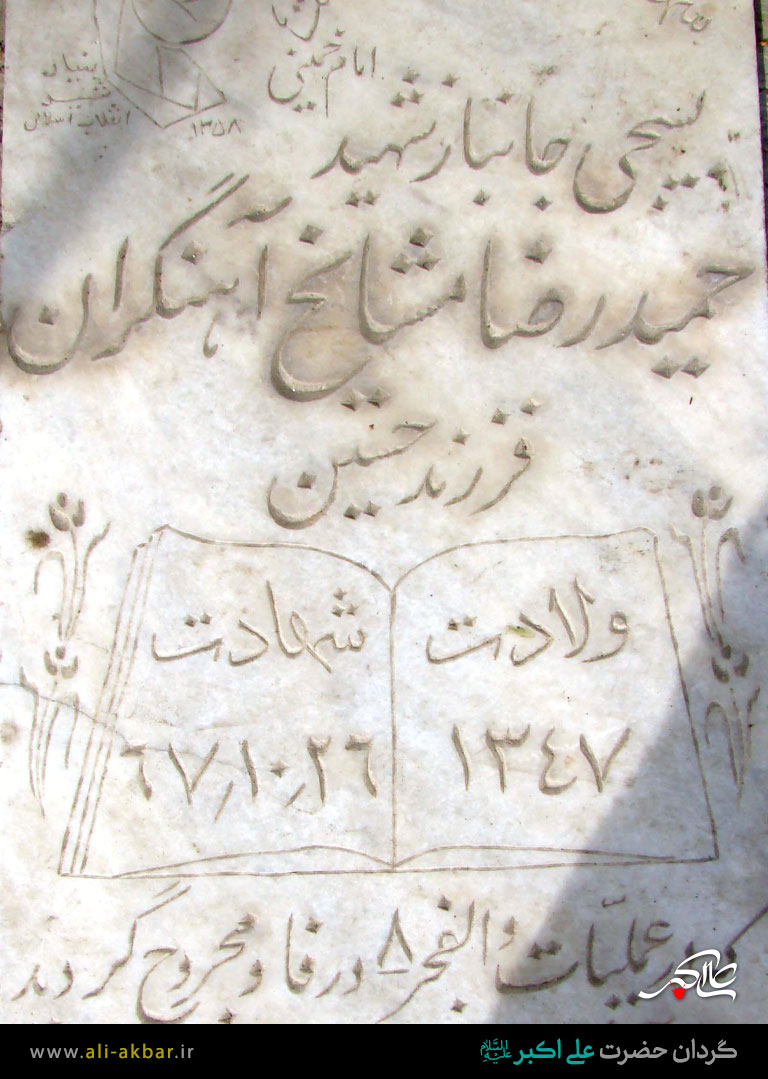 امام خمینی
بنیاد
شهید
انقلاب اسلامی
۱۳۵۸
بسیجی جانباز شهید
حمیدرضا مشایخ آهنگران
فرزند حسین
ولادت
۱۳۴۷
شهادت
۶۷٫۱۰٫۲۶
که در عملیّات والفجر ۸ در فاو مجروح گردید
علی اکبر
گردان حضرت علی اکبر علیه السلام
www.ali-akbar.ir